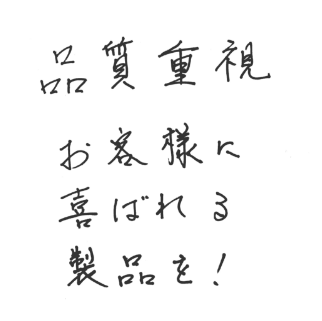 品質重視
お客様に
喜ばれる
製品を!